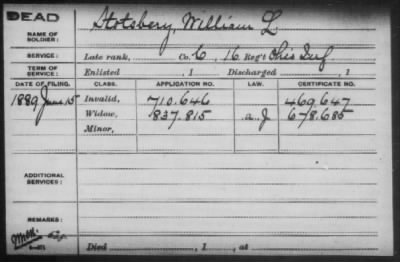 DEAD
NAME OF SOLDIER: Stotsbery, William L
SERVICE: Late rank, Co. C, 16 Reg't Ohio Inf
TERM OF SERVICE: Enlisted , 1 Discharged , 1
DATE OF FILING. CLASS. APPLICATION NO. LAW. CERTIFICATE NO.
1889 June 15 Invalid, 710.646 469.647
Widow, 837.815 a J 678.685
Minor,
ADDITIONAL SERVICES:
REMARKS:
Died , 1 , at